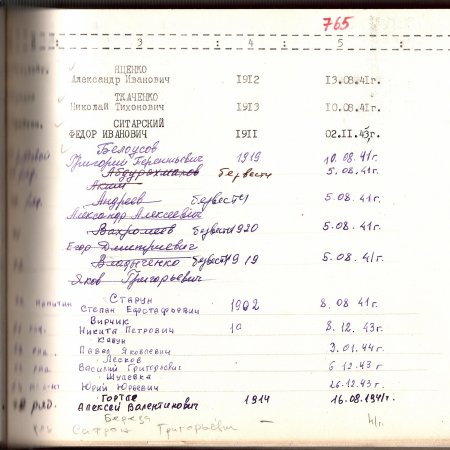 765
3 4 5
ЯЦЕНКО
Александр Иванович 1912 13.08.41г.
ТКАЧЕНКО
Николай Тихонович 1913 10.08.41г.
СИТАРСКИЙ
ФЕДОР ИВАНОВИЧ 1911 02.11.43г.
Белоусов
Григорий Терентьевич 1919 10.08.41г.
Абдурахманов без вести 5.08.41г.
Аким
Андреев без вести 5.08.41г.
Александр Алексеевич
Вахромеев без вести 1920 5.08.41г.
Егор Дмитриевич
Владыченко без вести 1919 5.08.41г.
Яков Григорьевич
капитан Старун
Степан Евстафьевич 1902 8.08 41г.
Вирчик
Никита Петрович 10 8.12.43г.
Ковун
Павел Яковлевич 9.01.44г.
Лесков
Василий Григорьевич 6 12.43 г
Шулевка
Юрий Юрьевич 26.12.43г.
Гортье
Алексей Валентинович 1914 16.08.1941г.
Береза
Сафрон Григорьевич